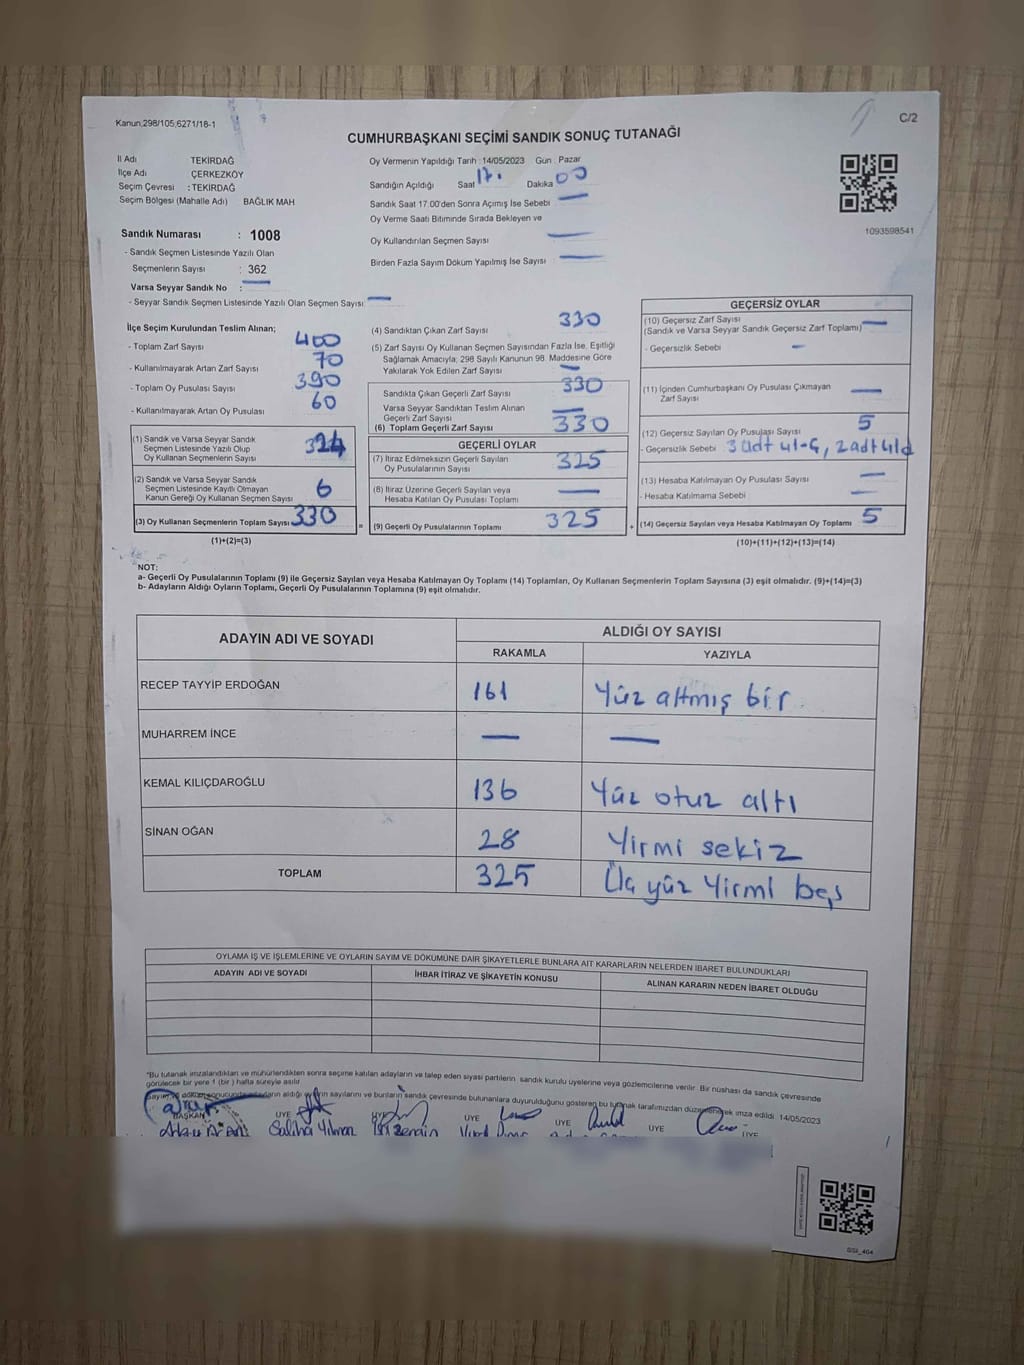 Kanun.298/105,6271/18-1
C/2
CUMHURBAŞKANI SEÇİMİ SANDIK SONUÇ TUTANAĞI
İl Adı TEKİRDAĞ
İlçe Adı ÇERKEZKÖY
Seçim Çevresi : TEKİRDAĞ
Seçim Bölgesi (Mahalle Adı) BAĞLIK MAH
Oy Vermenin Yapıldığı Tarih : 14/05/2023 Gün : Pazar
Sandığın Açıldığı Saat 17. Dakika 00
Sandık Saat 17.00'den Sonra Açımış İse Sebebi —
Oy Verme Saati Bitiminde Sırada Bekleyen ve
Oy Kullandırılan Seçmen Sayısı —
Birden Fazla Sayım Döküm Yapılmış İse Sayısı —
1093598541
Sandık Numarası : 1008
- Sandık Seçmen Listesinde Yazılı Olan
Seçmenlerin Sayısı : 362
Varsa Seyyar Sandık No : —
- Seyyar Sandık Seçmen Listesinde Yazılı Olan Seçmen Sayısı —
İlçe Seçim Kurulundan Teslim Alınan;
- Toplam Zarf Sayısı 400
- Kullanılmayarak Artan Zarf Sayısı 70
- Toplam Oy Pusulası Sayısı 390
- Kullanılmayarak Artan Oy Pusulası 60
(1) Sandık ve Varsa Seyyar Sandık
Seçmen Listesinde Yazılı Olup
Oy Kullanan Seçmenlerin Sayısı 324
(2) Sandık ve Varsa Seyyar Sandık
Seçmen Listesinde Kayıtlı Olmayan
Kanun Gereği Oy Kullanan Seçmen Sayısı 6
(3) Oy Kullanan Seçmenlerin Toplam Sayısı 330
(1)+(2)=(3)
(4) Sandıktan Çıkan Zarf Sayısı 330
(5) Zarf Sayısı Oy Kullanan Seçmen Sayısından Fazla İse, Eşitliği
Sağlamak Amacıyla; 298 Sayılı Kanunun 98. Maddesine Göre
Yakılarak Yok Edilen Zarf Sayısı —
Sandıkta Çıkan Geçerli Zarf Sayısı 330
Varsa Seyyar Sandıktan Teslim Alınan
Geçerli Zarf Sayısı —
(6) Toplam Geçerli Zarf Sayısı 330
GEÇERLİ OYLAR
(7) İtiraz Edilmeksizin Geçerli Sayılan
Oy Pusulalarının Sayısı 325
(8) İtiraz Üzerine Geçerli Sayılan veya
Hesaba Katılan Oy Pusulası Toplamı —
= (9) Geçerli Oy Pusulalarının Toplamı 325
GEÇERSİZ OYLAR
(10) Geçersiz Zarf Sayısı
(Sandık ve Varsa Seyyar Sandık Geçersiz Zarf Toplamı) —
- Geçersizlik Sebebi —
(11) İçinden Cumhurbaşkanı Oy Pusulası Çıkmayan
Zarf Sayısı —
(12) Geçersiz Sayılan Oy Pusulası Sayısı 5
- Geçersizlik Sebebi 3 adt 41-G, 2 adt 41d
(13) Hesaba Katılmayan Oy Pusulası Sayısı —
- Hesaba Katılmama Sebebi —
+ (14) Geçersiz Sayılan veya Hesaba Katılmayan Oy Toplamı 5
(10)+(11)+(12)+(13)=(14)
NOT:
a- Geçerli Oy Pusulalarının Toplamı (9) ile Geçersiz Sayılan veya Hesaba Katılmayan Oy Toplamı (14) Toplamları, Oy Kullanan Seçmenlerin Toplam Sayısına (3) eşit olmalıdır. (9)+(14)=(3)
b- Adayların Aldığı Oyların Toplamı, Geçerli Oy Pusulalarının Toplamına (9) eşit olmalıdır.
ADAYIN ADI VE SOYADI ALDIĞI OY SAYISI
RAKAMLA YAZIYLA
RECEP TAYYİP ERDOĞAN 161 Yüz altmış bir
MUHARREM İNCE — —
KEMAL KILIÇDAROĞLU 136 Yüz otuz altı
SİNAN OĞAN 28 Yirmi sekiz
TOPLAM 325 Üç yüz Yirmi beş
OYLAMA İŞ VE İŞLEMLERİNE VE OYLARIN SAYIM VE DÖKÜMÜNE DAİR ŞİKAYETLERLE BUNLARA AİT KARARLARIN NELERDEN İBARET BULUNDUKLARI
ADAYIN ADI VE SOYADI İHBAR İTİRAZ VE ŞİKAYETİN KONUSU ALINAN KARARIN NEDEN İBARET OLDUĞU
"Bu tutanak imzalandıktan ve mühürlendikten sonra seçime katılan adayların ve talep eden siyasi partilerin sandık kurulu üyelerine veya gözlemcilerine verilir. Bir nüshası da sandık çevresinde
görülecek bir yere 1 (bir) hafta süreyle asılır.
oyların sayılarını ve bunların sandık çevresinde bulunanlara duyurulduğunu gösteren bu tutanak tarafımızdan düzenlenerek imza edildi. 14/05/2023
BAŞKAN ÜYE ÜYE ÜYE ÜYE ÜYE
Saliha Yılmaz
GSI_464